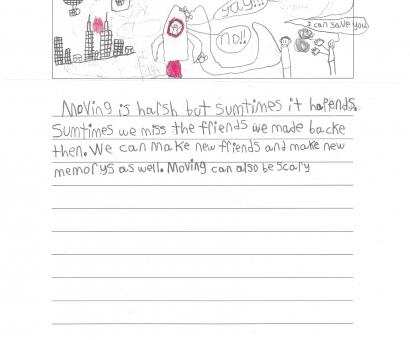 yay!!!
I can save you
no!!
Moving is harsh but sumtimes it hapends.
Sumtimes we miss the friends we made backe
then. We can make new friends and make new
memorys as well. Moving can also be scary